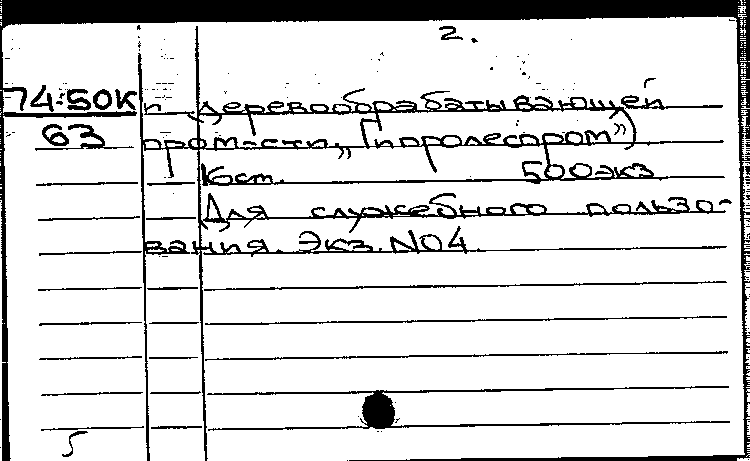 2.
74-50К и деревообрабатывающей
63 пром-сти „Гипролеспром")
Кст. 500экз
Для служебного пользо-
вания. Экз. №4.
5